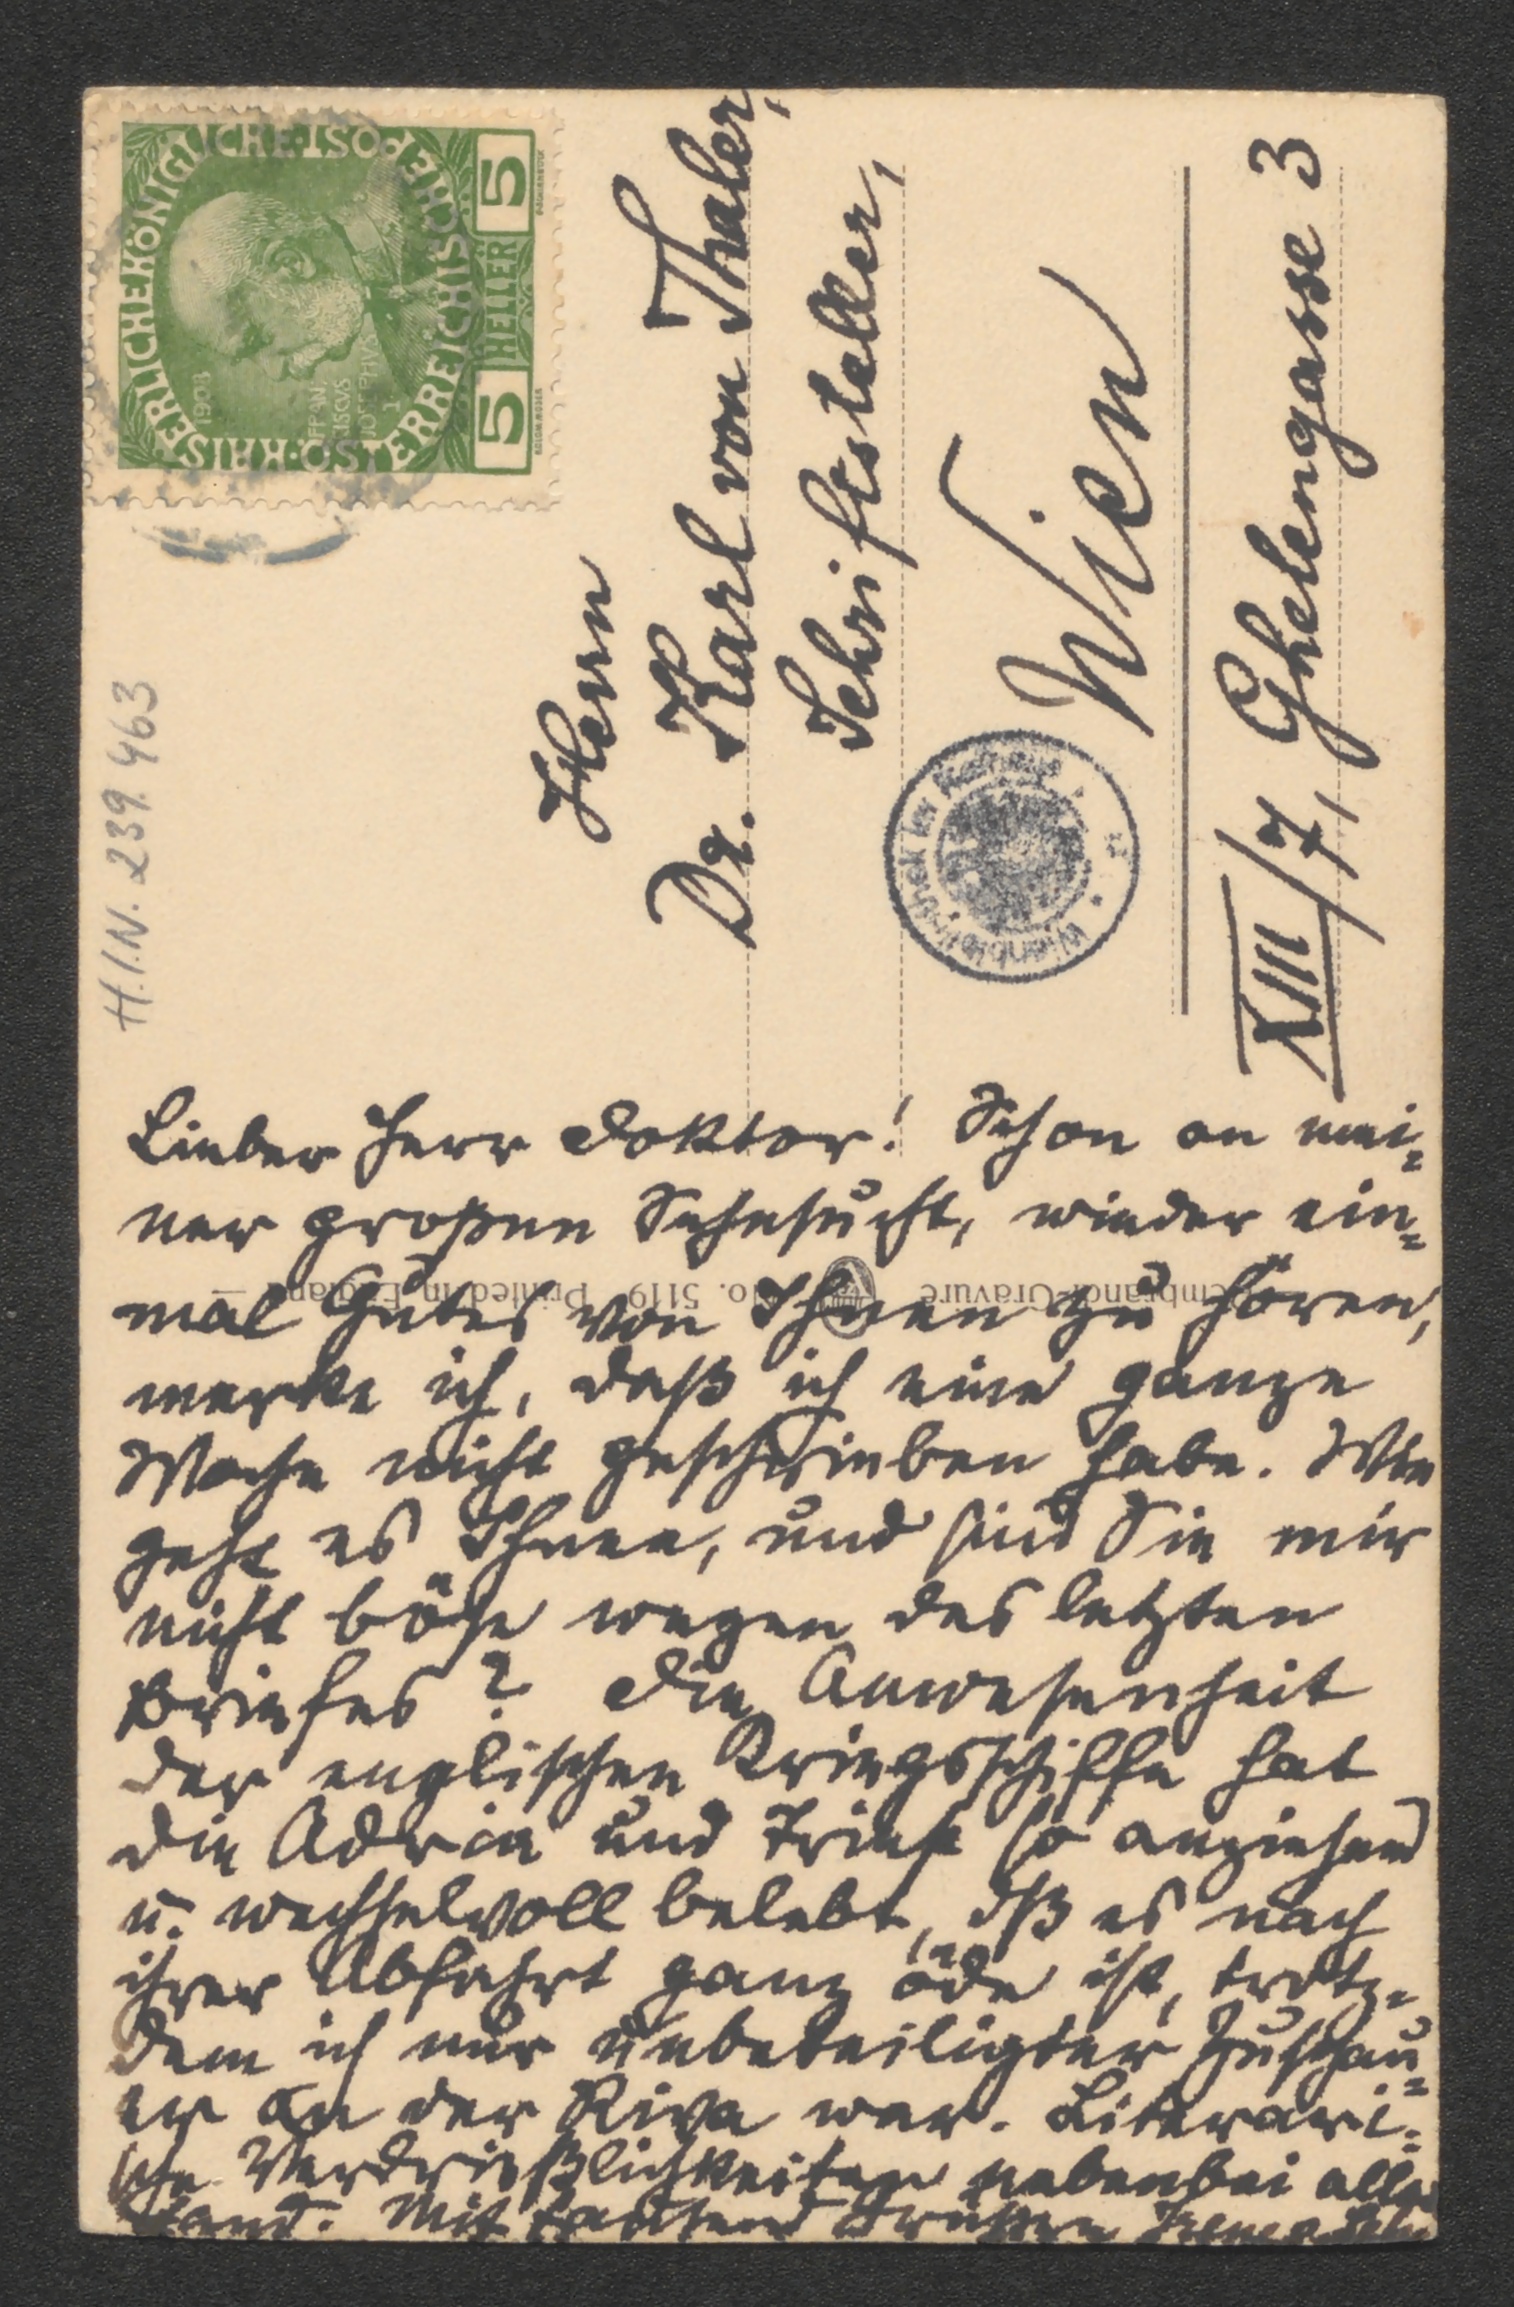 KAISERLICHE KÖNIGLICHE ÖSTERREICHISCHE POST
5 HELLER 5
1908
H.I.N. 239.463
Herrn
Dr. Karl von Thaler,
Schriftsteller,
Wien
XIII/7, Ghelengasse 3
Lieber Herr Doktor! Schon an mei=
ner großen Sehnsucht, wieder ein=
mal Gutes von Ihnen zu hören,
merke ich, daß ich eine ganze
Woche nicht geschrieben habe. Wie
geht es Ihnen, und sind Sie mir
nicht böse wegen des letzten
Briefes? Die Anwesenheit
der englischen Kriegsschiffe hat
die Adria und Triest so anziehend
u. wechselvoll belebt, dß es nach
ihrer Abfahrt ganz öde ist, trotz=
dem ich nur unbeteiligter Zuschau=
er an der Riva war. Literari=
sche Verdrießlichkeiten nebenbei aller
hand. Mit tausend Grüßen
Rembrandt-Gravure No. 5119 Printed in England